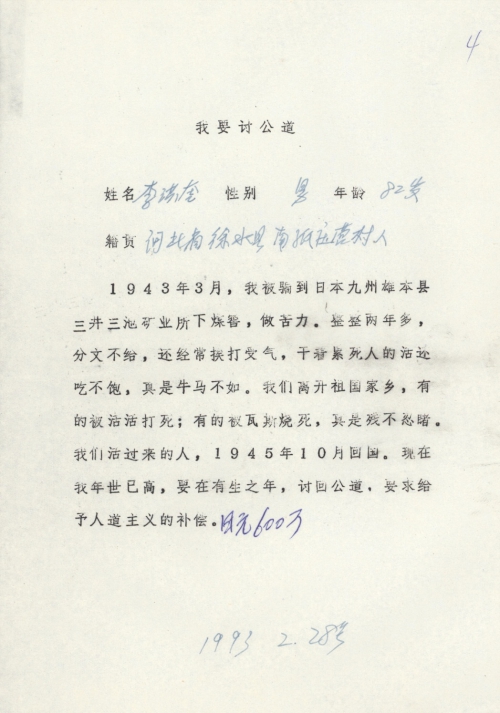 4
我要讨公道
姓名 李 奎 性别 男 年龄 82岁
籍贯 河北省徐水县南 庄营村人
1943年3月，我被骗到日本九州雄本县
三井三池矿业所下煤窑，做苦力。整整两年多，
分文不给，还经常挨打受气，干着累死人的活还
吃不饱，真是牛马不如。我们离开祖国家乡，有
的被活活打死；有的被瓦斯烧死，真是残不忍睹。
我们活过来的人，1945年10月回国。现在
我年世已高，要在有生之年，讨回公道，要求给
予人道主义的补偿。日元600万
1993 2.28